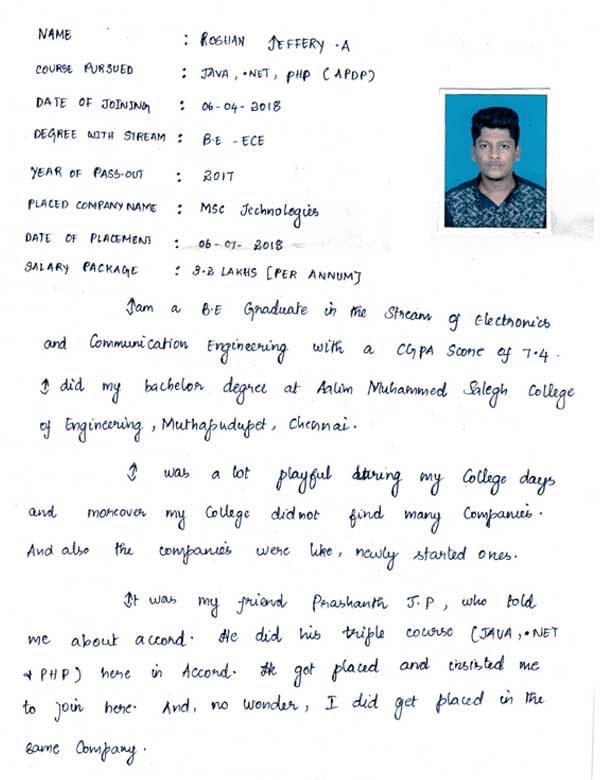 NAME : ROSHAN JEFFERY .A
COURSE PURSUED : JAVA, .NET, PHP (APDP)
DATE OF JOINING : 06-04-2018
DEGREE WITH STREAM : B.E - ECE
YEAR OF PASS-OUT : 2017
PLACED COMPANY NAME : MSC Technologies
DATE OF PLACEMENT : 06-07-2018
SALARY PACKAGE : 3.2 LAKHS [PER ANNUM]
I am a B.E Graduate in the Stream of Electronics
and Communication Engineering with a CGPA Score of 7.4.
I did my bachelor degree at Aalim Muhammed Salegh College
of Engineering, Muthapudupet, Chennai.
I was a lot playful during my College days
and moreover my College did not find many Companies.
And also the companies were like, newly started ones.
It was my friend Prashanth J.P, who told
me about accord. He did his triple course (JAVA, .NET
& PHP) here in Accord. He got placed and insisted me
to join here. And, no wonder, I did get placed in the
same Company.